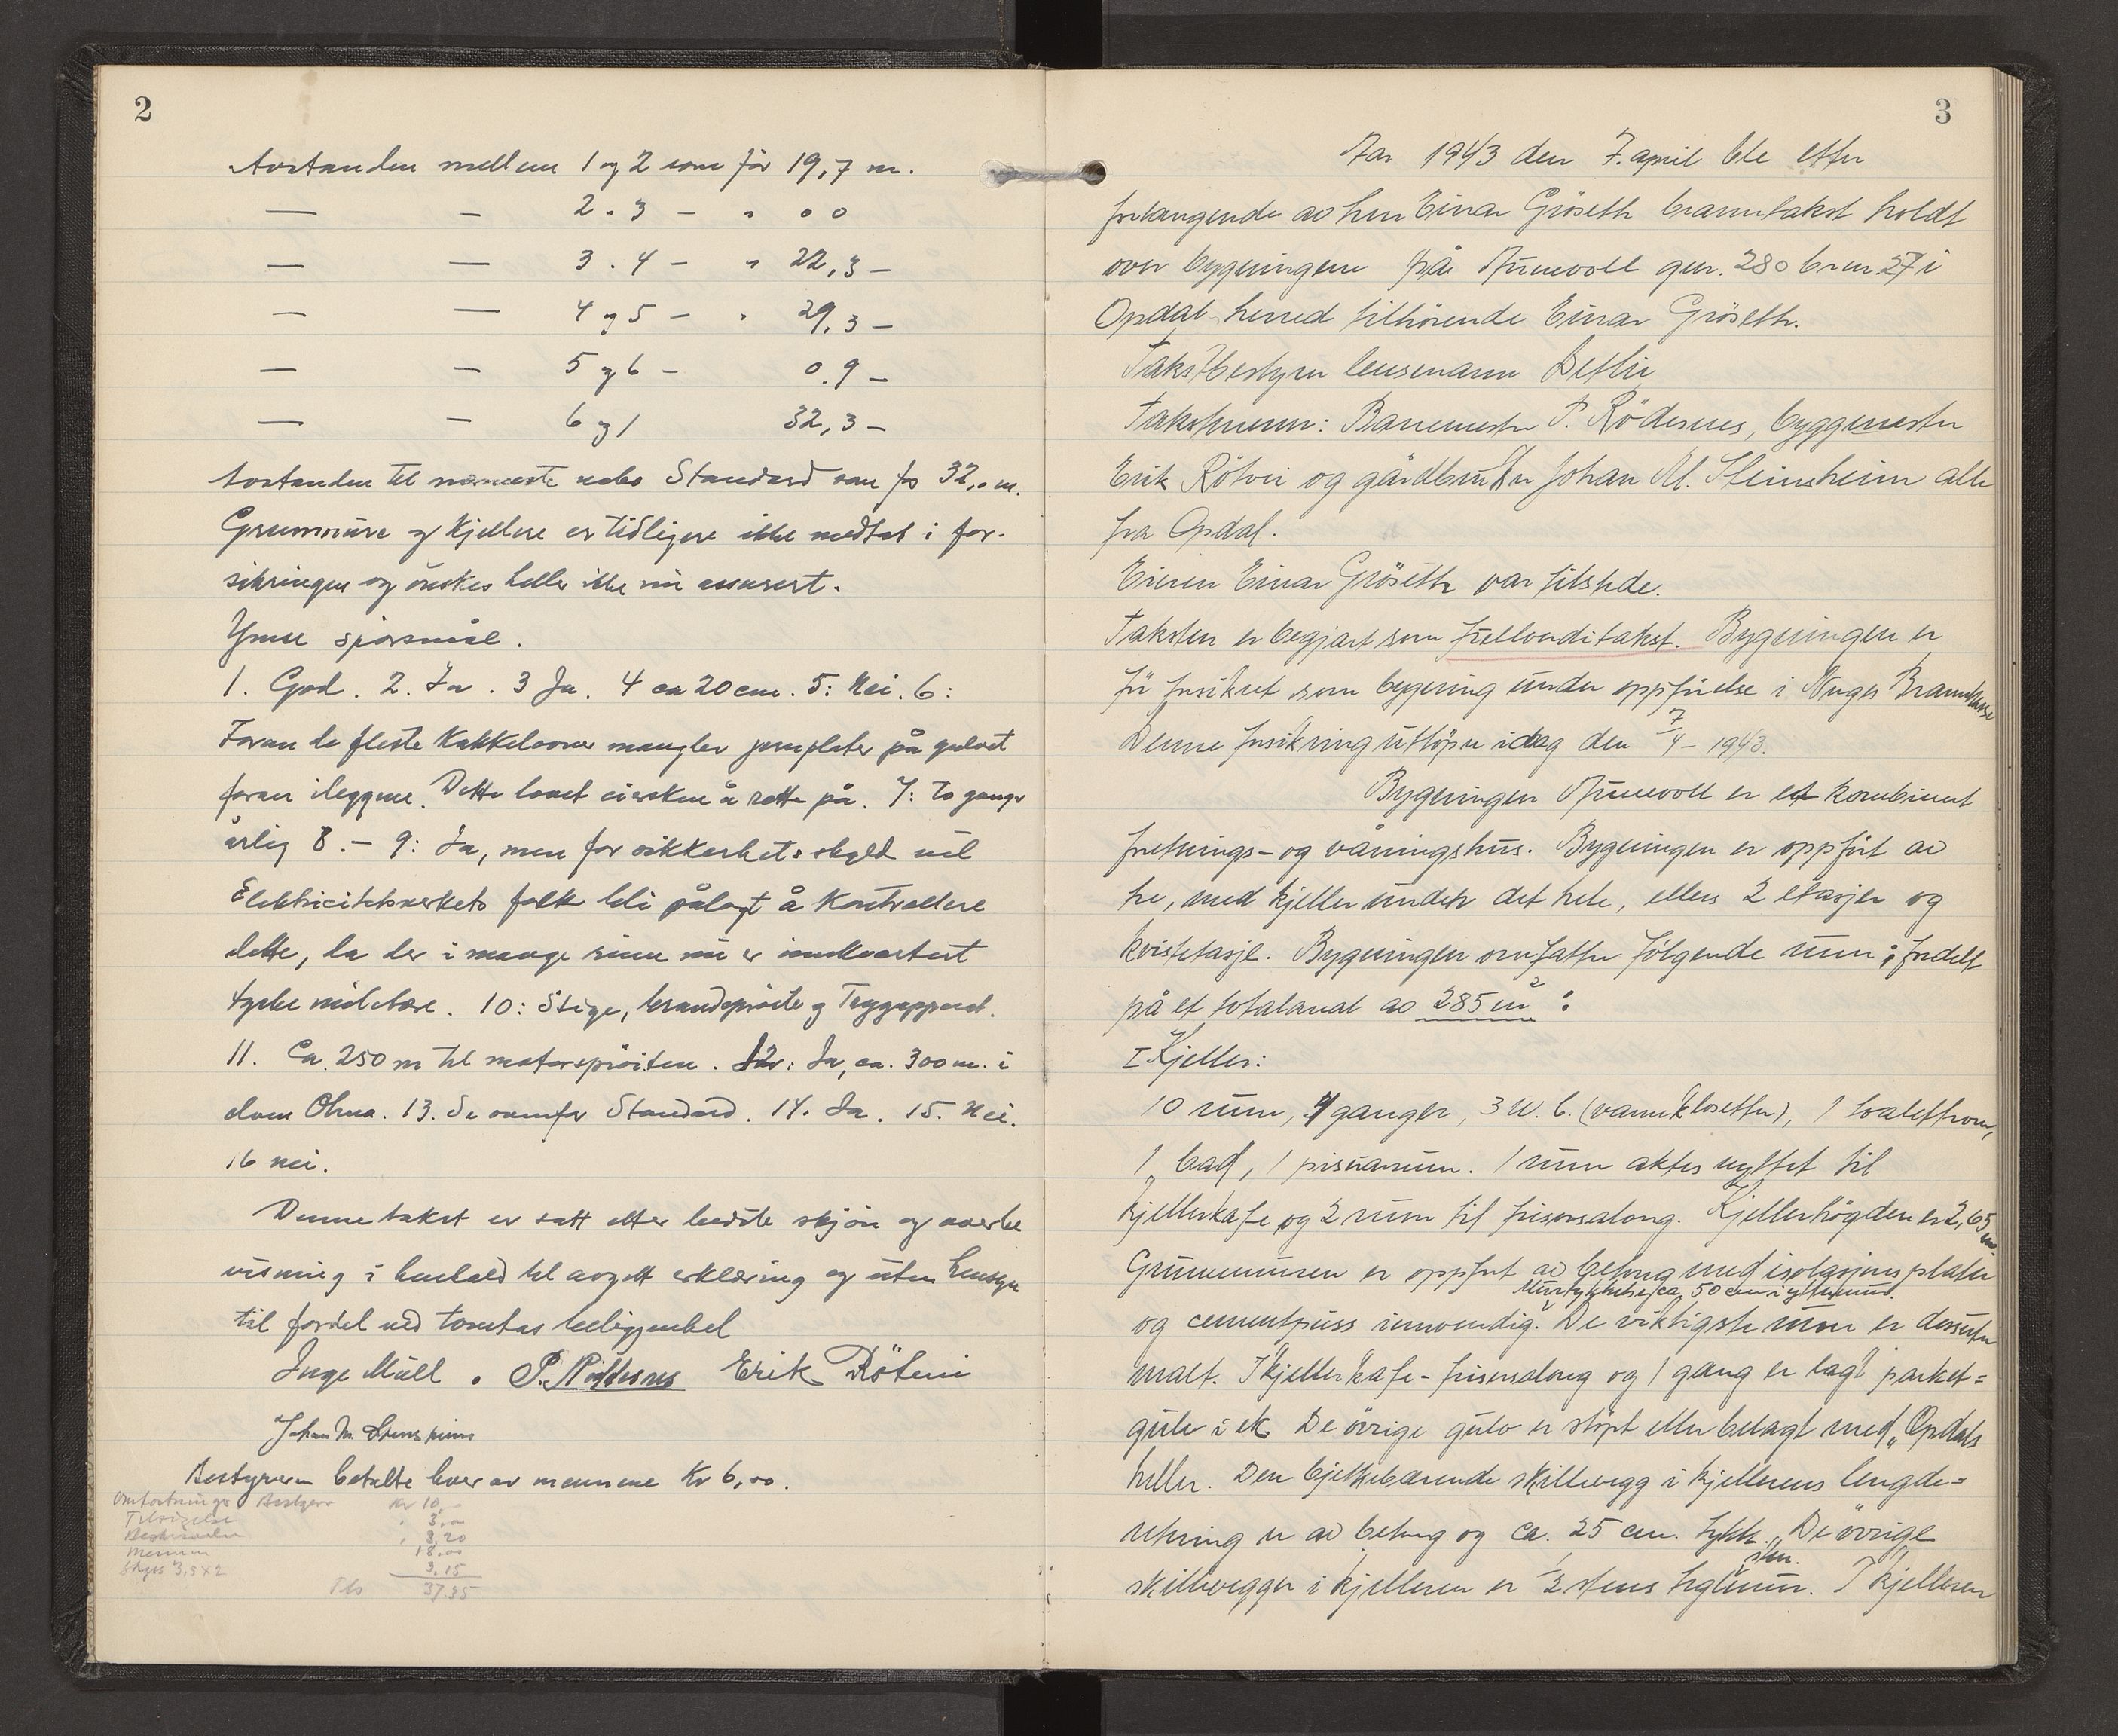 2
Avstanden mellem 1 og 2 som før 19,7 m.
— - 2 - 3 - " 00
— — 3 - 4 - " 22,3 -
— — 4 og 5 - " 29,3 -
— - 5 og 6 - 0.9 -
— - 6 og 1 32,3 -
Avstanden til nærmeste nabo Standard som før 32,0 m.
Grunmure og kjellere er tidligere ikke medtat i for-
sikringen og ønskes heller ikke nu assurert.
Ymse spørsmål.
1. God. 2. Ja. 3 Ja. 4 ca 20 cm. 5: Nei. 6:
Foran de fleste kakkelovner mangler jernplater på gulvet
foran ileggene. Dette lovet eiersken å rette på. 7: To ganger
årlig 8. - 9: Ja, men for sikkerhets skyld vil
Elektricitetsverkets folk bli pålagt å kontrollere
dette, da der i mange rum nu er innkvartert
tyske militære. 10: Stige, brandsprøite og Trygapparat.
11. Ca. 250 m til motorsprøiten. 12: Ja, ca. 300 m. i
elven Olma. 13. Se ovenfor Standard. 14. Ja. 15. Nei.
16 nei.
Denne takst er satt etter bedste skjøn og overbe
visning i henhold til avgitt erklæring og uten hensyn
til fordel ved tomtens beliggenhet
Inge Müll . P. Rödesnes Erik Rötvei
Johan M. Stensheim
Bestyreren betalte hver av mennene Kr 6,00.
Omfortnings Bestyrer Kr 10,-
Tilsigelse " 3,00
" 3,20
Mennene 18,00
Skyss 3,5 x 2 3,15
Tils 37.35
3
Aar 1943 den 7. april ble etter
forlangende av herr Einar Gröseth branntakst holdt
over bygningene på Aunevoll gnr. 280 brnr. 27 i
Opdal herred tilhörende Einar Gröseth.
Takstbestyrer lensmann Detlie
Takstmenn: Banemester P. Rödesnes, byggmester
Erik Rötvei og gårdbruker Johan M. Steinsheim alle
fra Opdal.
Eieren Einar Gröseth var tilstede.
Taksten er begjært som fullverditakst. Bygningen er
för forsikret som bygning under oppförelse i Norges Brannkasse
Denne forsikring utlöper idag den 7/4 - 1943.
Bygningen Aunevoll er et kombinert
forretnings- og våningshus. Bygningen er oppfört av
tre, med kjeller under det hele, ellers 2 etasjer og
kvistetasje. Bygningen omfatter fölgende rum: fordelt
på et totalareal av 285 m²:
I Kjeller:
10 rum, 4 ganger, 3 W.C. (vannklosetter), 1 toalettrom,
1 bad, 1 pisuarrum. 1 rum aktes nyttet til
kjellerkafe og 2 rum til frisersalong. Kjellerhögden er 2,65 m.
Grunnmuren er oppfört av betong med isolasjonsplater
Murtykkelse ca. 50 cm i yttermur.
og cementpuss innvendig. De viktigste rum er dessuten
malt. I kjellerkafe - frisersalong og 1 gang er lagt parket=
gulv i ek. De övrige gulv er stöpt eller belagt med „Opdals
heller. Den bjelkebærende skillevegg i kjellerens lengde=
retning er av betong og ca. 25 cm. tykk. De övrige
sten.
skillevegger i kjelleren er ½ stens teglmur. I kjelleren